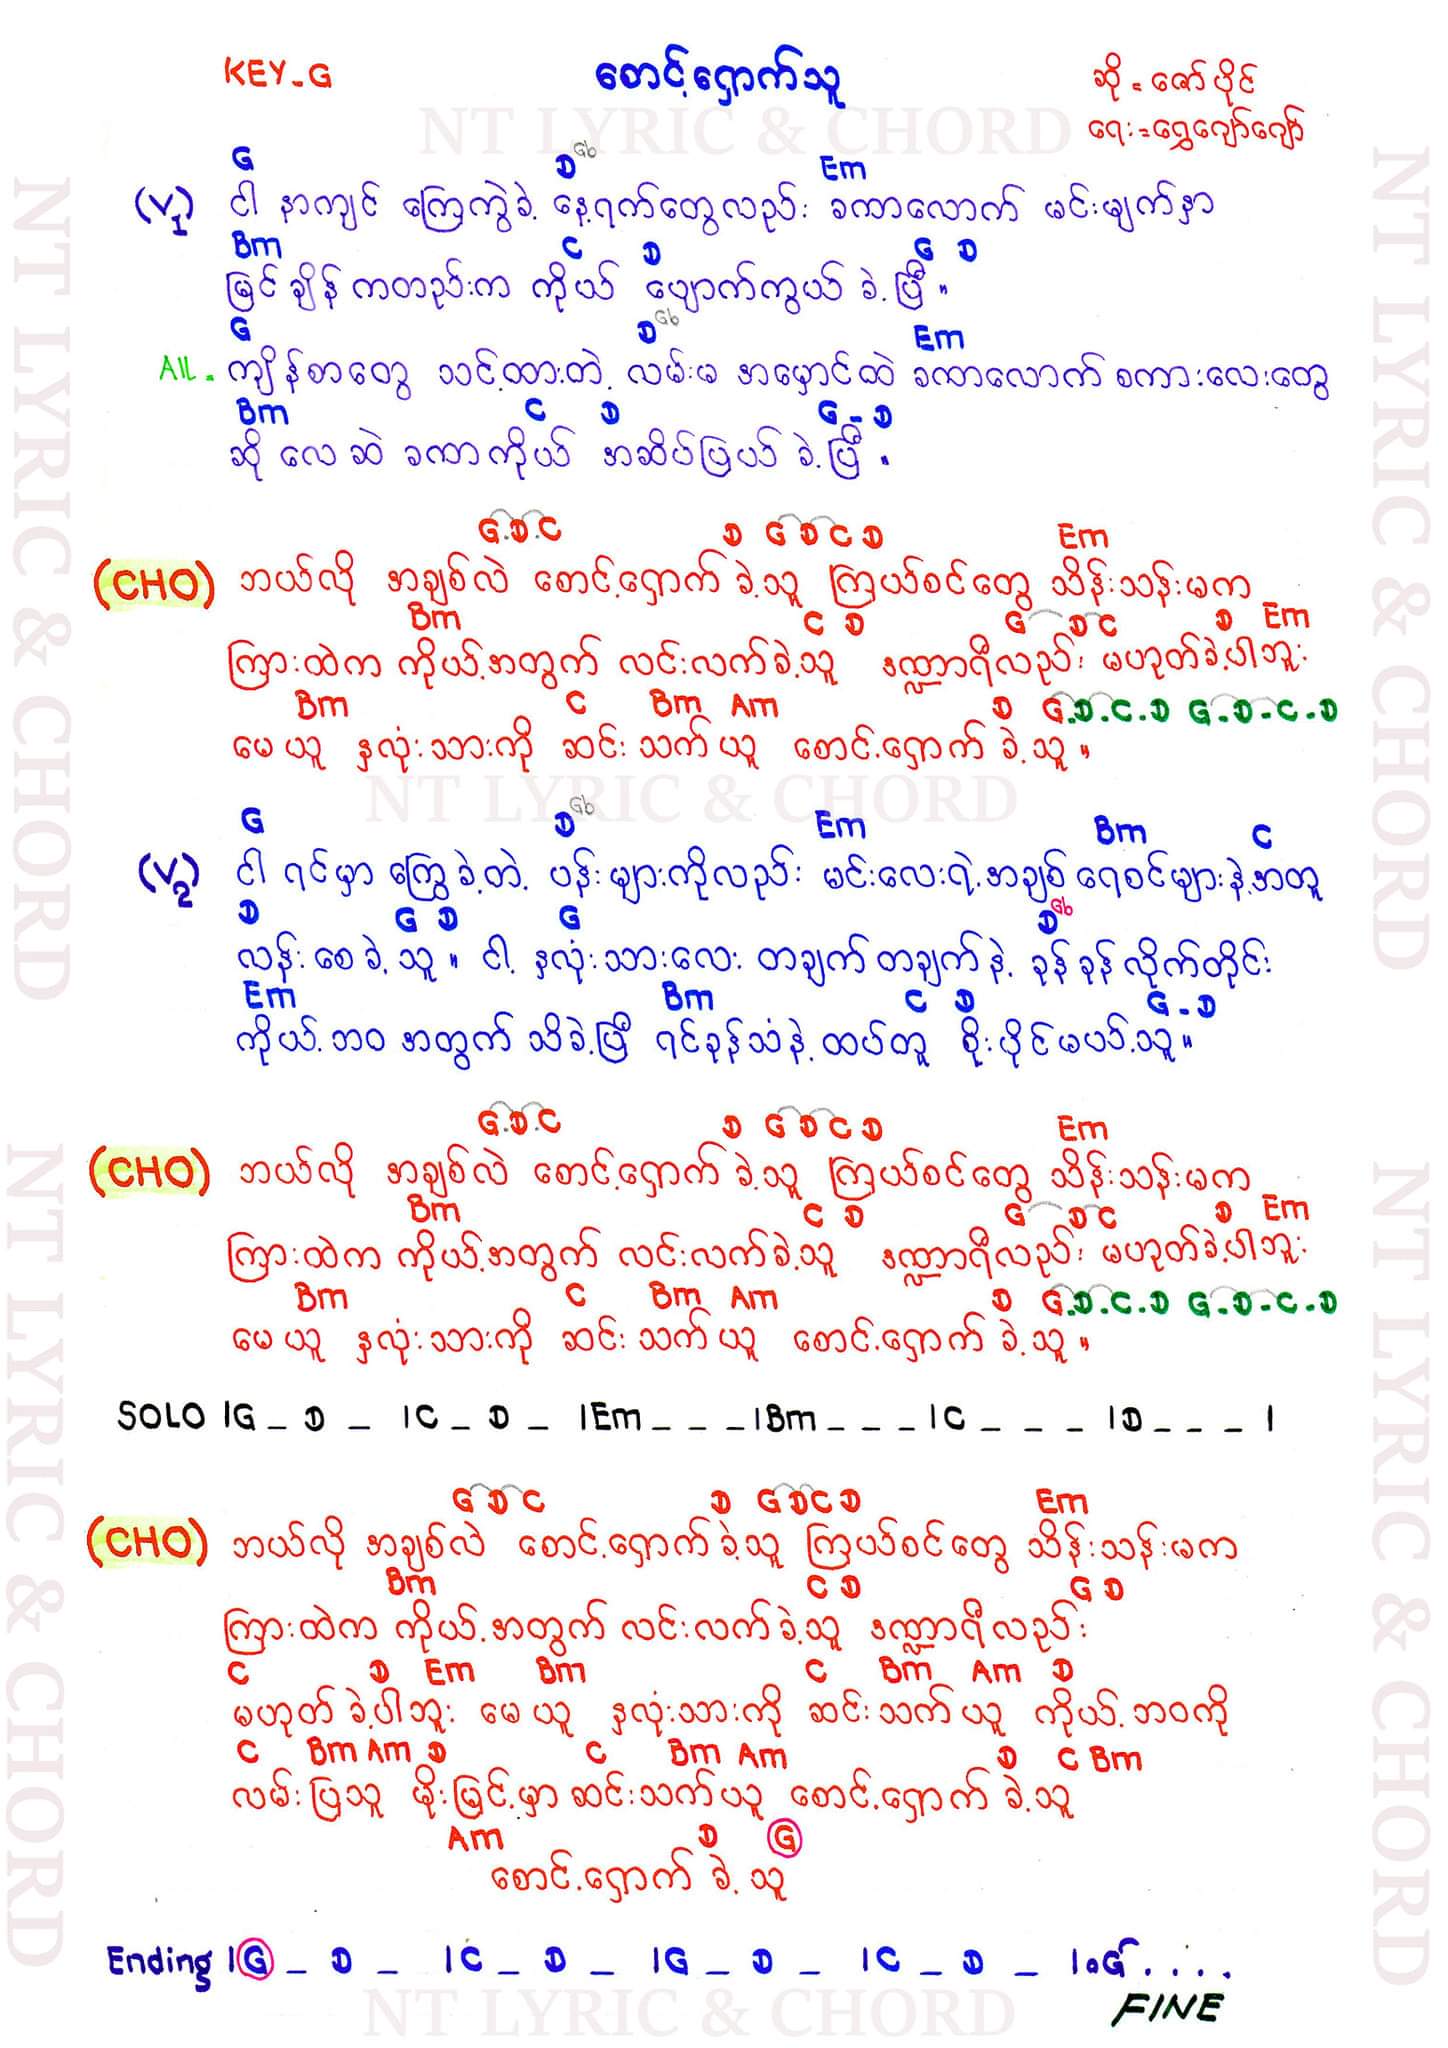 KEY-G စောင့်ရှောက်သူ ဆို - ဇော်ပိုင်
NT LYRIC & CHORD
ရေး - ရွှေဂျော်ဂျော်
G D Gb Em
(V1) ငါ နာကျင် ကြေကွဲခဲ့ နေ့ရက်တွေလည်း ခဏလောက် မင်းမျက်နှာ
Bm C D G D
မြင်ချိန် ကတည်းက ကိုယ် ပျောက်ကွယ် ခဲ့ပြီ။
G D Gb Em
All - ကျိန်စာတွေ သင့်ထားတဲ့ လမ်းမ အမှောင်ထဲ ခဏလောက် စကားလေးတွေ
Bm C D G - D
ဆို လေ ဆဲ ခဏကိုယ် အဆိပ်ပြယ် ခဲ့ပြီ။
G.D.C D G D C D Em
(CHO) ဘယ်လို အချစ်လဲ စောင့်ရှောက် ခဲ့သူ ကြယ်စင်တွေ သိန်းသန်းမက
Bm C D G D C D Em
ကြားထဲက ကိုယ့်အတွက် လင်းလက်ခဲ့သူ ဒဏ္ဍာရီလည်း မဟုတ်ခဲ့ပါဘူး
Bm C Bm Am D G.D.C.D G-D-C-D
မေ ယူ နှလုံးသားကို ဆင်းသက်ယူ စောင့်ရှောက် ခဲ့သူ။
NT LYRIC & CHORD
G D Gb Em Bm C
(V2) ငါ ရင်မှာ ကြွေခဲ့တဲ့ ပန်းများကိုလည်း မင်းလေးရဲ့အချစ် ရေစင်များနဲ့အတူ
D G D G D Gb
လန်းစေခဲ့သူ။ ငါ့ နှလုံးသားလေး တချက်တချက်နဲ့ ခုန်ခုန်လိုက်တိုင်း
Em Bm C D G - D
ကိုယ့်ဘဝ အတွက် သိခဲ့ပြီ ရင်ခုန်သံနဲ့ ထပ်တူ စိုးပိုင်မယ့်သူ။
G.D.C D G D C D Em
(CHO) ဘယ်လို အချစ်လဲ စောင့်ရှောက် ခဲ့သူ ကြယ်စင်တွေ သိန်းသန်းမက
Bm C D G D C D Em
ကြားထဲက ကိုယ့်အတွက် လင်းလက်ခဲ့သူ ဒဏ္ဍာရီလည်း မဟုတ်ခဲ့ပါဘူး
Bm C Bm Am D G.D.C.D G-D-C-D
မေ ယူ နှလုံးသားကို ဆင်းသက်ယူ စောင့်ရှောက် ခဲ့သူ။
SOLO |G _ D _ |C _ D _ |Em _ _ _ |Bm _ _ _ |C _ _ _ |D _ _ _ |
G D C D G D C D Em
(CHO) ဘယ်လို အချစ်လဲ စောင့်ရှောက် ခဲ့သူ ကြယ်စင်တွေ သိန်းသန်းမက
Bm C D G D
ကြားထဲက ကိုယ့်အတွက် လင်းလက်ခဲ့သူ ဒဏ္ဍာရီလည်း
C D Em Bm C Bm Am D
မဟုတ်ခဲ့ပါဘူး မေ ယူ နှလုံးသားကို ဆင်းသက်ယူ ကိုယ့်ဘဝကို
C Bm Am D C Bm Am D C Bm
လမ်းပြသူ မိုးမြင့်မှာ ဆင်းသက်ယူ စောင့်ရှောက် ခဲ့သူ
Am D G
စောင့်ရှောက် ခဲ့ သူ
Ending |G _ D _ |C _ D _ |G _ D _ |C _ D _ |.G . . . .
NT LYRIC & CHORD
FINE
NT LYRIC & CHORD
NT LYRIC & CHORD
NT LYRIC & CHORD
NT LYRIC & CHORD